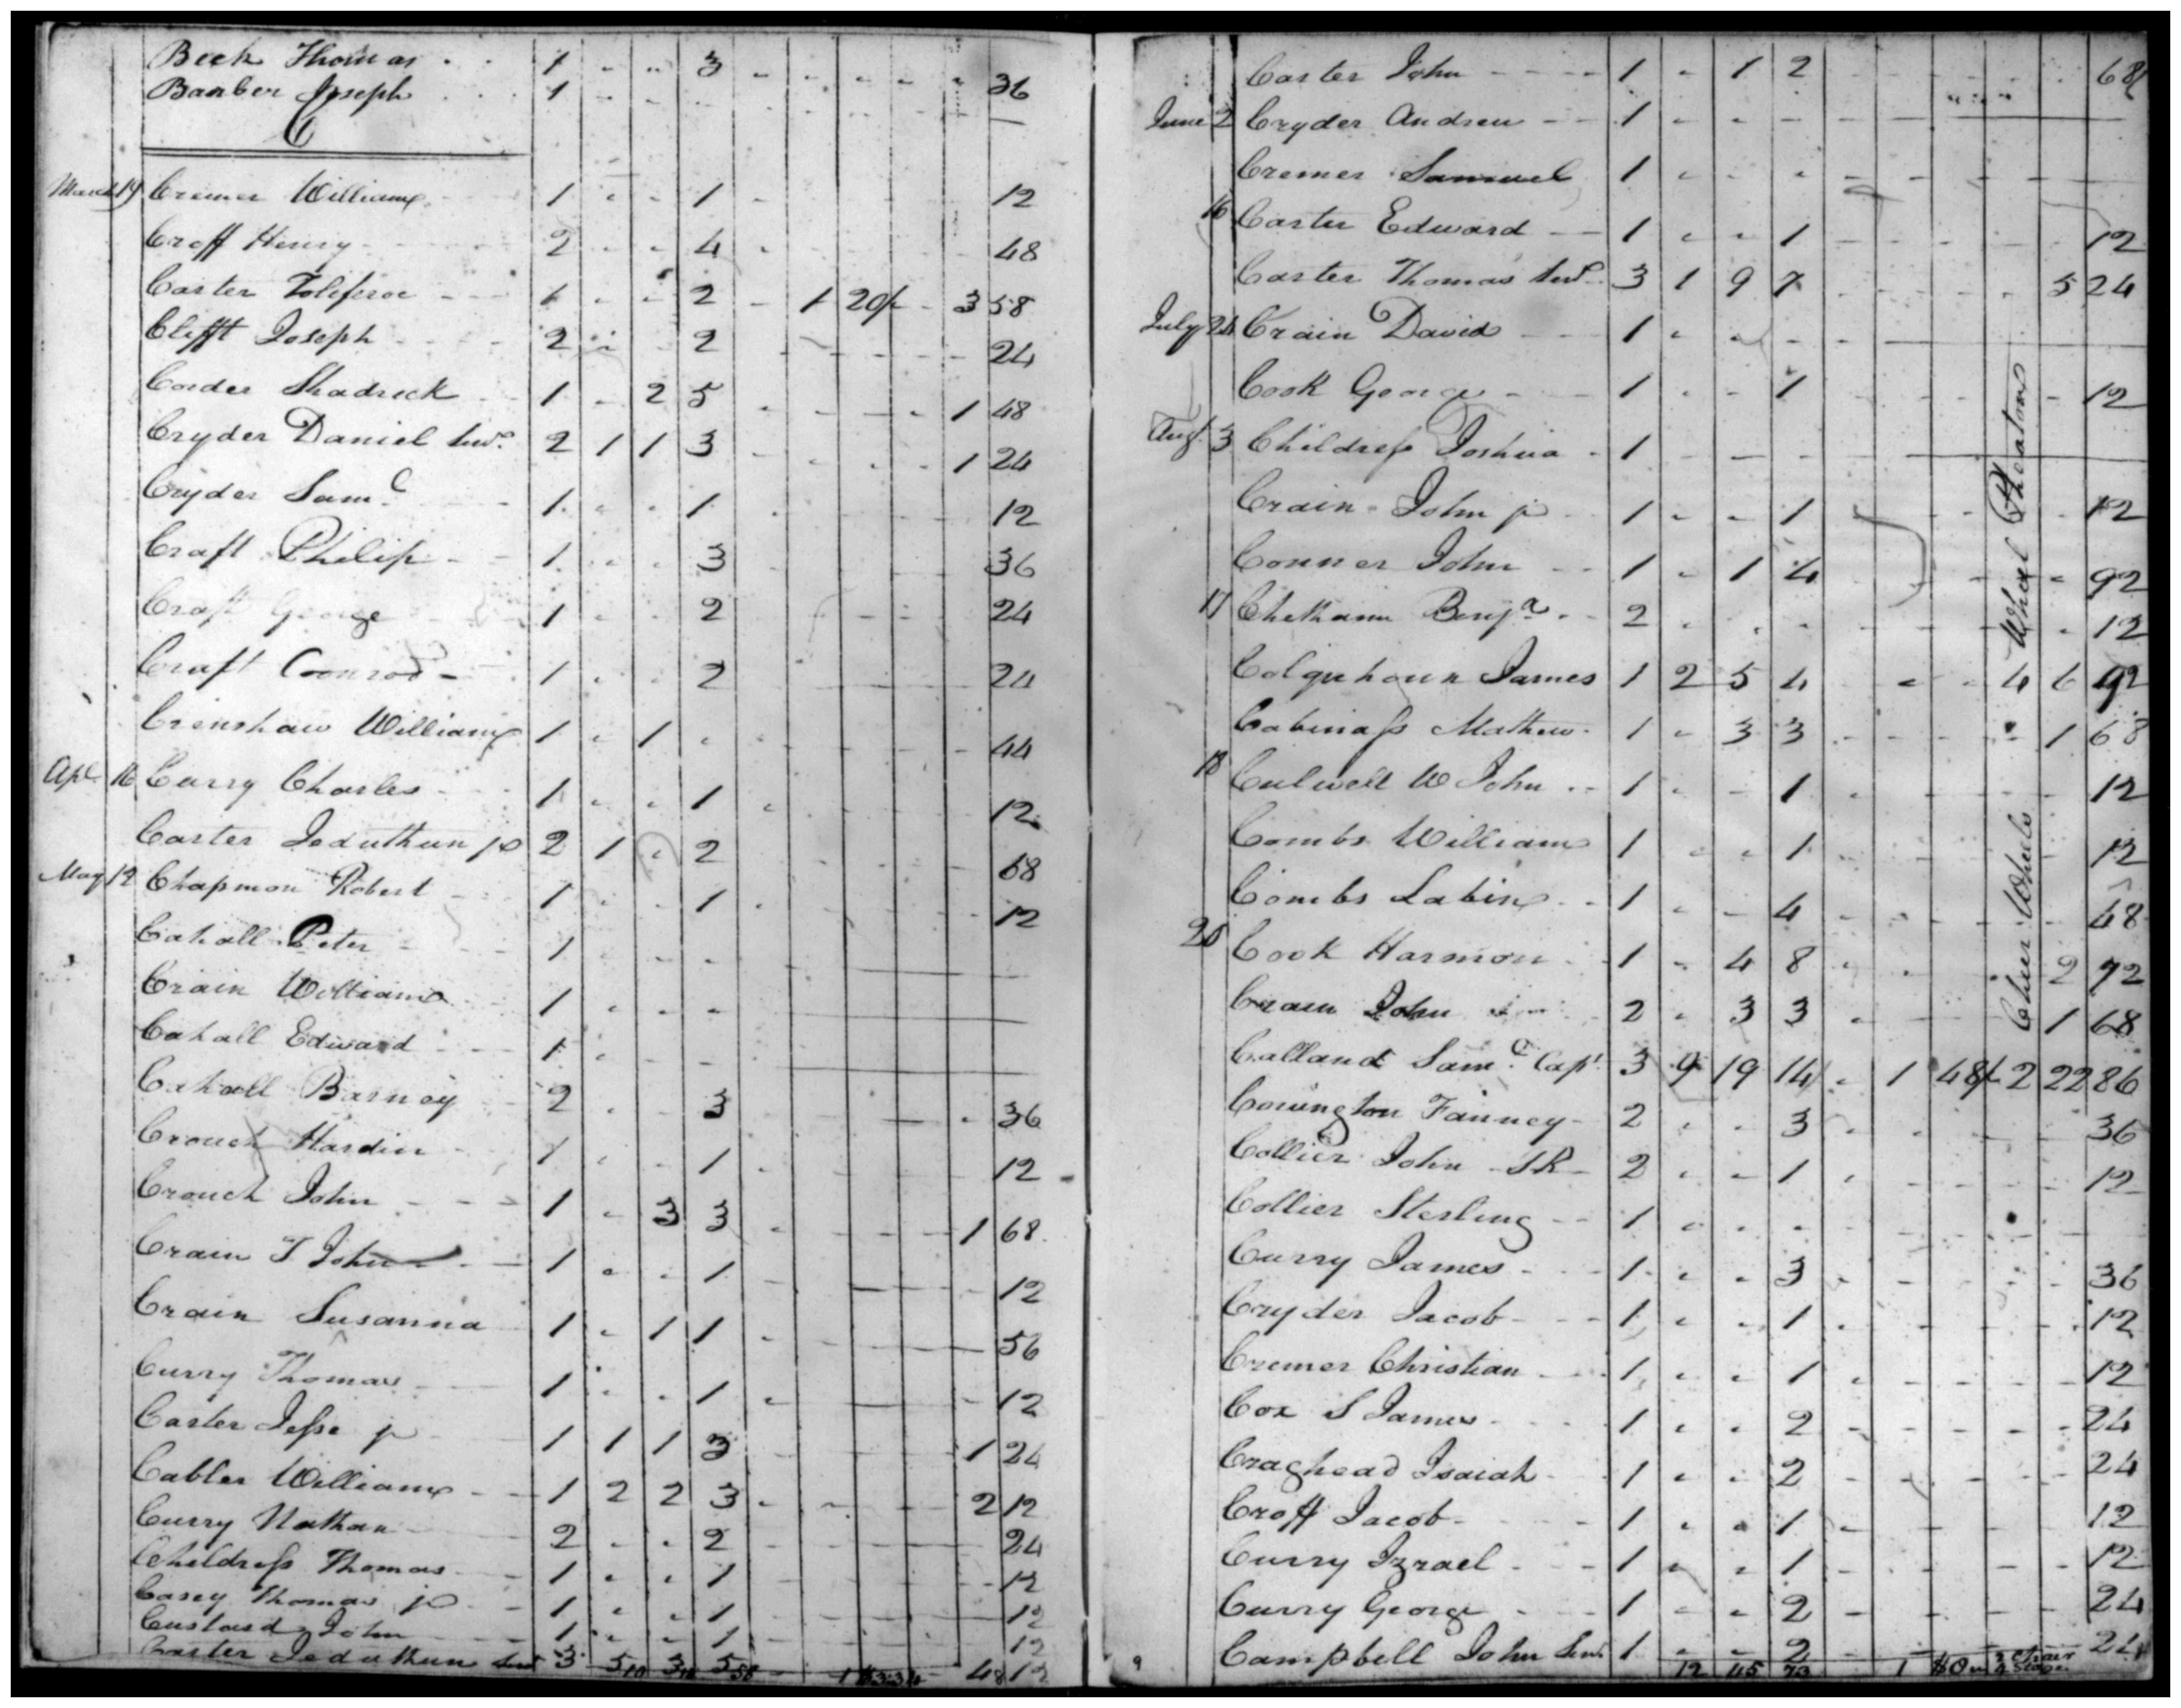 Beck Thomas 1 - - 3 - - - - - 36
Barber Joseph 1 - - - - - - - - —
C
March 19 Cremer William 1 - - 1 - 12
Croff Henry 2 - - 4 - 48
Carter Toliferoe 1 - - 2 - 1 20/ - 3 58
Clifft Joseph 2 - - 2 - - - - - 24
Corder Shadrick 1 - 2 5 - - - - 1 48
Cryder Daniel Senr. 2 1 1 3 - - - - 1 24
Cryder Saml 1 - - 1 - - - - - 12
Craft Philip 1 - - 3 - - - 36
Craft George 1 - - 2 - - - 24
Craft Coonrod 1 - - 2 - - - 24
Crenshaw William 1 - 1 - - - - - - 44
Apl. 16 Curry Charles 1 - - 1 - - - - - 12
Carter Jeduthun jr 2 1 - 2 - - - - 68
May 12 Chapman Robert 1 - - 1 - - - - - 12
Cahall Peter 1 - - - - - - —
Crain William 1 - - - —
Cahall Edward 1 - - - —
Cahall Barney 2 - - 3 - - - 36
Crouch Hardin 1 - - 1 - - - - 12
Crouch John 1 - 3 3 - - - - 1 68
Crain T John 1 - - 1 - - - - 12
Crain Susanna 1 - 1 1 - - - - 56
Curry Thomas 1 - - 1 - - - - 12
Carter Jesse jr 1 1 1 3 - - - 1 24
Cabler William 1 2 2 3 - - - - 2 12
Curry Nathan 2 - - 2 - - - 24
Childress Thomas 1 - - 1 - - - - 12
Casey Thomas jr 1 - - 1 - - - 12
Custard John 1 - - 1 - - - 12
Carter Jeduthun Senr 3 5 3 5 - 4 12
Carter John 1 - 1 2 68
June 2 Cryder Andrew 1 - - - - - —
Cremer Samuel 1 - - - - - - - -
16 Carter Edward 1 - - 1 - - - - - 12
Carter Thomas Senr 3 1 9 7 - - - - 5 24
July 24 Crain David 1 - - - - —
Cook George 1 - - 1 - - - - - 12
Augt. 3 Childress Joshua 1 - - - - —
Crain John jr 1 - - 1 - - - 12
Conner John 1 - 1 4 - - - 92
17 Chetham Benja. 2 - - - - - - - 12
Colquhoun James 1 2 5 4 - - 4 6 92
Cabiness Mathew 1 - 3 3 - - - - 1 68
18 Culwell W John 1 - - 1 - - - - - 12
Combs William 1 - - 1 - - - - 12
Combs Labin 1 - - 4 - - - - - 48
20 Cook Harmon 1 - 4 8 - - - 2 72
Crain John 2 - 3 3 - - - 1 68
Calland Saml. Capt. 3 9 19 14 - 1 48/ 2 22 86
Covington Fanney 2 - - 3 - - - - 36
Collier John SR 2 - - 1 - - - - 12
Collier Sterling 1 - - - - - - - -
Curry James 1 - - 3 - - - - 36
Cryder Jacob 1 - - 1 - - - - - 12
Cremer Christian 1 - - 1 - - - - - 12
Cox S James 1 - - 2 - - - - - 24
Craghead Isaiah 1 - - 2 - - - - - 24
Croff Jacob 1 - - 1 - - - - 12
Curry Izrael 1 - - 1 - - - - 12
Curry George 1 - - 2 - - - - - 24
Campbell John Senr 1 - - 2 - - 24
9 12 45 73 1
4 Wheel Pheatons
Chair Wheels